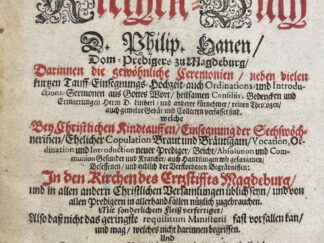 Kirchen-Buch
D. Philip. Hanen/
Dom-Prediger zu Magdeburg/
Darinnen die gewöhnliche Ceremonien/ neben vielen
kurtzen Tauff-Einsegnungs-Hochzeit-auch Ordinations-und Introdu-
ctions-Sermonen aus Gottes Wort/ heilsamen Consiliis, Bedencken und
Erinnerungen Herrn D. Lutheri/ und anderer fürnehmer/ reinen Theologen/
auch gemeine Gebät und Collecten verfasset sind,
welche
Bey Christlichen Kindtauffen/ Einsegnung der Sechswöch-
nerinnen/ Ehelicher Copulation Braut und Bräutigam/ Vocation, Or-
dination und Introduction neuer Prediger/ Beicht/ Absolution und Com-
munion Gesunder und Krancker/ auch Handlungen mit gefangenen/
Besessenen/ und endlich der Verstorbenen Begräbnissen:
In den Kirchen des Ertzstiffts Magdeburg/
und in allen andern Christlichen Versamlungen üblich seyn/ und von
allen Predigern in allerhand fällen nützlich zugebrauchen.
Mit sonderlichem Fleiß verfertiget/
Also daß nicht das geringste requisitum Ministerii fast vorfallen kan/
und mag/ welches nicht darinnen begriffen.
Und